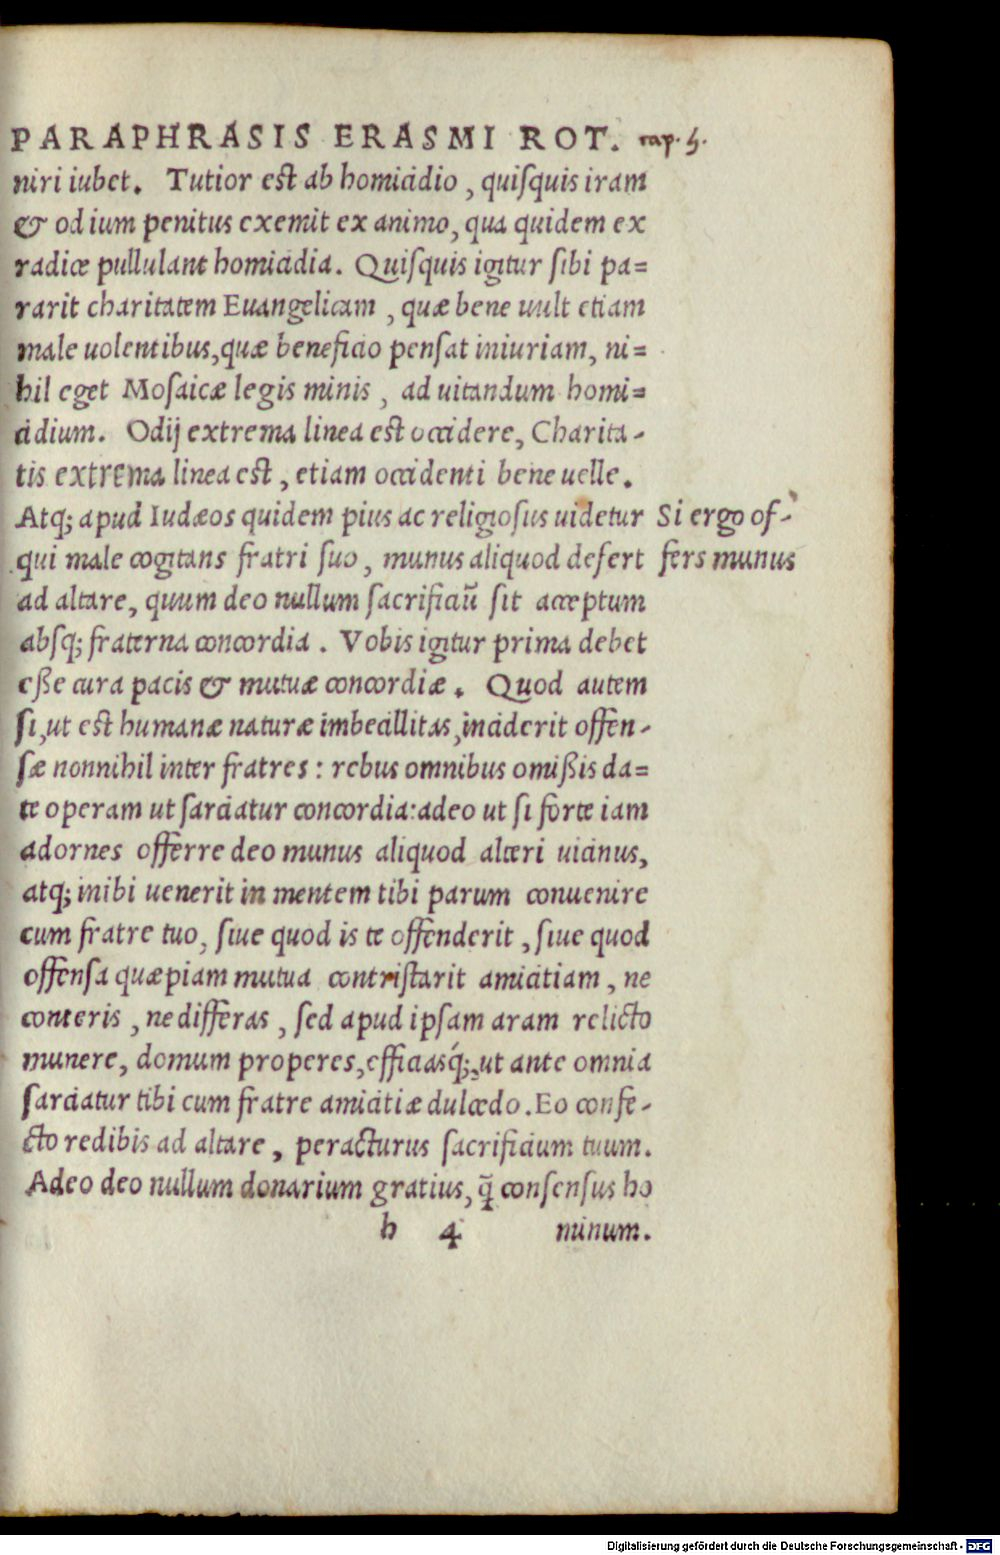 PARAPHRASIS ERASMI ROT. cap. 5.
niri iubet. Tutior est ab homicidio, quisquis iram
& odium penitus exemit ex animo, qua quidem ex
radice pullulant homicidia. Quisquis igitur sibi pa=
rarit charitatem Euangelicam, quæ bene uult etiam
male uolentibus, quæ beneficio pensat iniuriam, ni=
hil eget Mosaicæ legis minis, ad uitandum homi=
cidium. Odij extrema linea est occidere, Charita-
tis extrema linea est, etiam occidenti bene uelle.
Atq; apud Iudæos quidem pius ac religiosus uidetur
qui male cogitans fratri suo, munus aliquod defert
Si ergo of-
fers munus
ad altare, quum deo nullum sacrificiū sit acceptum
absq; fraterna concordia. Vobis igitur prima debet
eße cura pacis & mutuæ concordiæ. Quod autem
si, ut est humanæ naturæ imbecillitas, inciderit offen-
sæ nonnihil inter fratres: rebus omnibus omißis da=
te operam ut sarciatur concordia: adeo ut si forte iam
adornes offerre deo munus aliquod alteri uicinus,
atq; inibi uenerit in mentem tibi parum conuenire
cum fratre tuo, siue quod is te offenderit, siue quod
offensa quæpiam mutua contristarit amicitiam, ne
conteris, ne differas, sed apud ipsam aram relicto
munere, domum properes, efficiasq́;, ut ante omnia
sarciatur tibi cum fratre amicitiæ dulcedo. Eo confe-
cto redibis ad altare, peracturus sacrificium tuum.
Adeo deo nullum donarium gratius, q̄ consensus ho
h 4 minum.
Digitalisierung gefördert durch die Deutsche Forschungsgemeinschaft - DFG